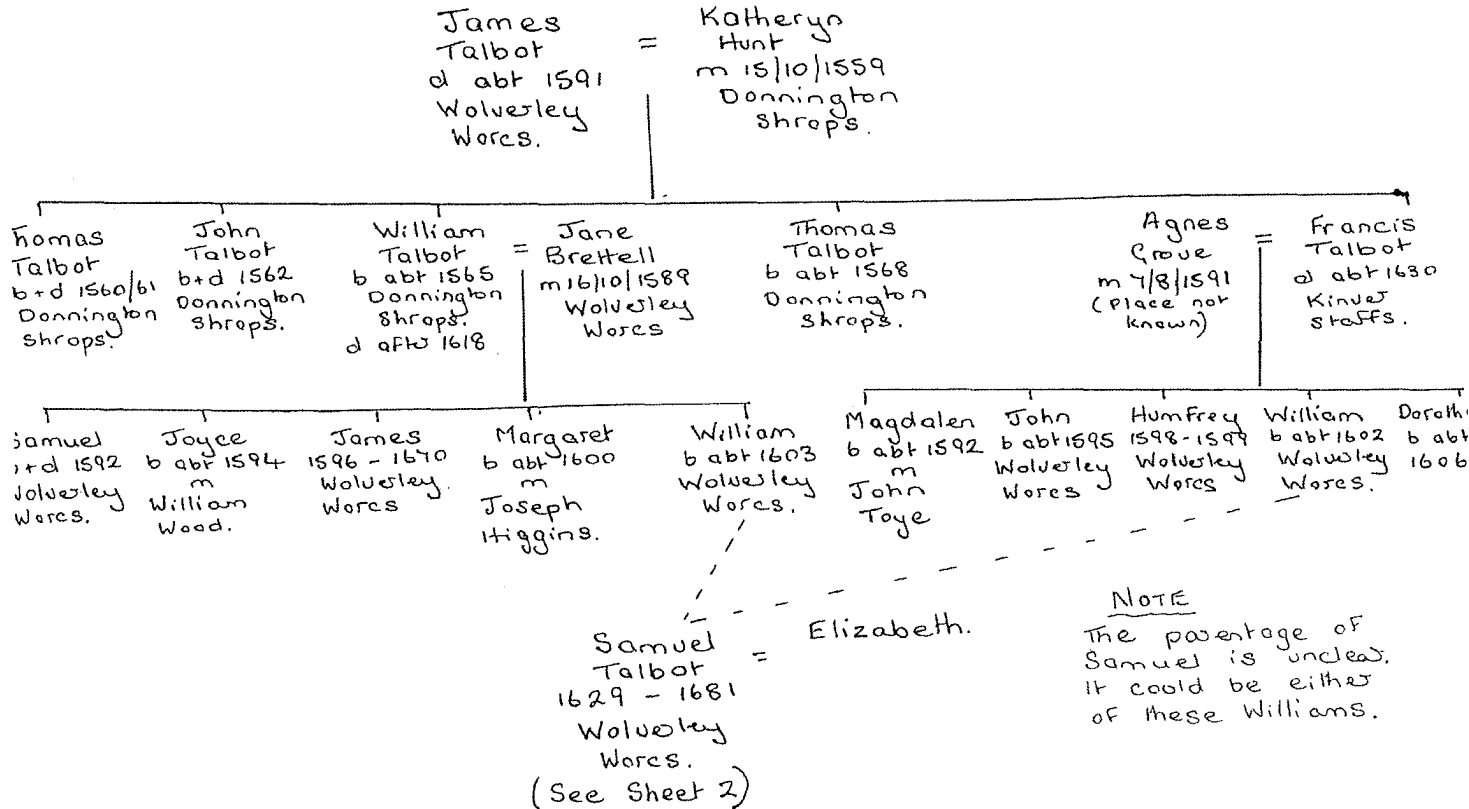 James
Talbot
d abt 1591
Wolverley
Worcs.
=
Katheryn
Hunt
m 15/10/1559
Donnington
Shrops.
homas
Talbot
b+d 1560/61
Donnington
Shrops.
John
Talbot
b+d 1562
Donnington
Shrops.
William
Talbot
b abt 1565
Donnington
Shrops.
d after 1618
=
Jane
Brettell
m 16/10/1589
Wolverley
Worcs
Thomas
Talbot
b abt 1568
Donnington
Shrops.
Agnes
Grove
m 7/8/1591
(Place not
known)
=
Francis
Talbot
d abt 1630
Kinver
Staffs.
Samuel
+d 1592
Wolverley
Worcs.
Joyce
b abt 1594
m
William
Wood.
James
1596 - 1670
Wolverley.
Worcs
Margaret
b abt 1600
m
Joseph
Higgins.
William
b abt 1603
Wolverley
Worcs.
Magdalen
b abt 1592
m
John
Toye
John
b abt 1595
Wolverley
Worcs
Humfrey
1598-1599
Wolverley
Worcs
William
b abt 1602
Wolverley
Worcs.
Doroth
b abt
1606
Samuel
Talbot
1629 - 1681
Wolverley
Worcs.
(See Sheet 2)
=
Elizabeth.
NOTE
The parentage of
Samuel is unclear.
It could be either
of these Willians.